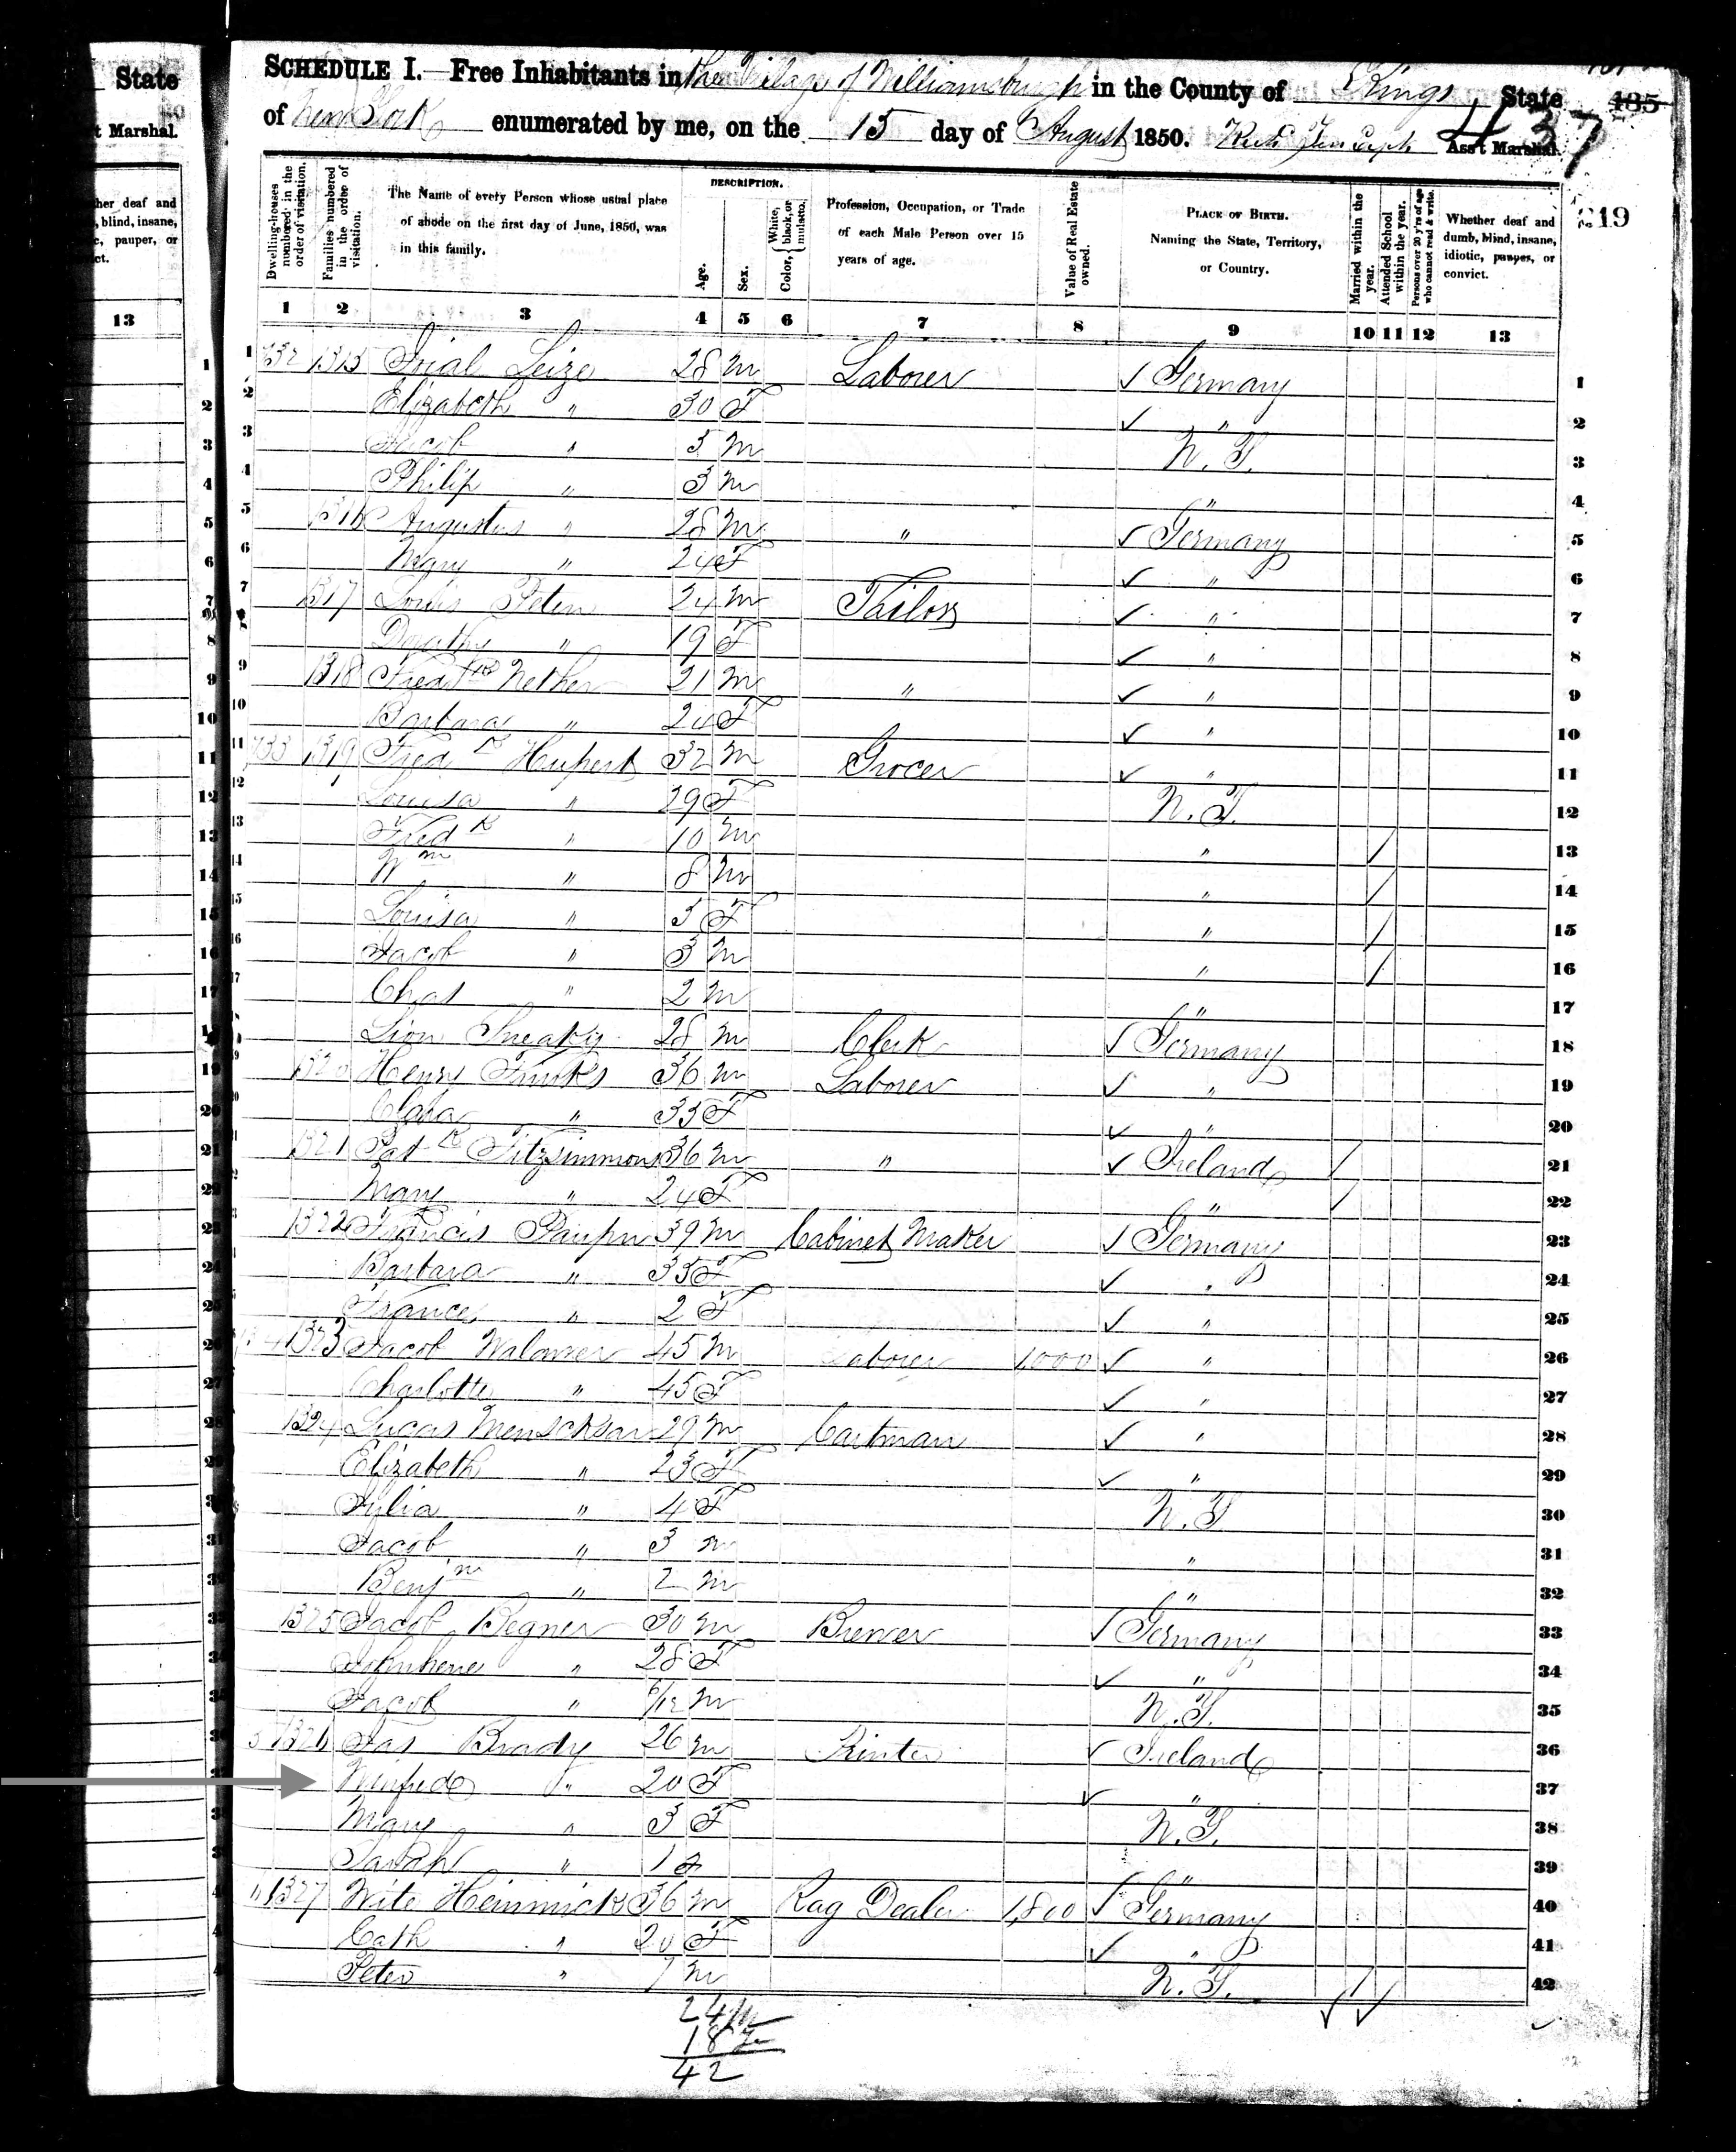 State
t Marshal.
her deaf and
, blind, insane,
c, pauper, or
ct.
13
SCHEDULE I.—Free Inhabitants in the Village of Williamsburgh in the County of Kings State 435
of New York enumerated by me, on the 15 day of August 1850. Ass't Marshal. 437
219
Dwelling-houses numbered in the order of visitation.
Families numbered in the order of visitation.
The Name of every Person whose usual place of abode on the first day of June, 1850, was in this family.
DESCRIPTION.
Age.
Sex.
Color, { White, black, or mulatto.
Profession, Occupation, or Trade of each Male Person over 15 years of age.
Value of Real Estate owned.
PLACE OF BIRTH. Naming the State, Territory, or Country.
Married within the year.
Attended School within the year.
Persons over 20 y'rs of age who cannot read & write.
Whether deaf and dumb, blind, insane, idiotic, pauper, or convict.
1 2 3 4 5 6 7 8 9 10 11 12 13
1 1315 28 M Laborer ✓ Germany 1
2 Elizabeth " 30 F ✓ " 2
3 Jacob " 5 M N.Y. 3
4 Philip " 3 M " 4
5 1316 Augustus " 28 M " ✓ Germany 5
6 Mary " 24 F ✓ " 6
7 1317 Louis Peten 24 M Tailor ✓ " 7
8 Dorothy " 19 F ✓ " 8
9 1318 Fredk Nether 21 M " ✓ " 9
10 Barbara " 24 F ✓ " 10
11 733 1319 Fredk Hupert 32 M Grocer ✓ " 11
12 Louisa " 29 F N.Y. 12
13 Fredk " 10 M " / 13
14 Wm " 8 M " / 14
15 Louisa " 5 F " / 15
16 Jacob " 3 M " / 16
17 Chas " 2 M " 17
28 M Clerk ✓ Germany 18
19 1320 Henry 36 M Laborer ✓ " 19
20 Clara " 35 F ✓ " 20
21 1321 Patk Fitzsimmons 36 M " ✓ Ireland / 21
Mary " 24 F " / 22
1322 Francis 39 M Cabinet Maker ✓ Germany 23
Barbara " 35 F ✓ " 24
Frances " 2 F ✓ " 25
1323 Jacob 45 M Laborer 1,000 ✓ " 26
27 Charlotte " 45 F ✓ " 27
28 1324 Lucas 29 M Cartman ✓ " 28
29 Elizabeth " 23 F ✓ " 29
Julia " 4 F N.Y. 30
Jacob " 3 M " 31
Benjn " 2 M " 32
1325 Jacob Begner 30 M Brewer ✓ Germany 33
" 28 F ✓ " 34
Jacob " 6/12 M N.Y. 35
1326 Jas Brady 26 M Printer ✓ Ireland 36
" 20 F ✓ " 37
Mary " 3 F N.Y. 38
Sarah " 1 F " 39
1327 Wite Heinmick 36 M Rag Dealer 1,800 ✓ Germany 40
Cath " 20 F ✓ " 41
Peter " 7 M N.Y. / 42
24 M
18 F
42